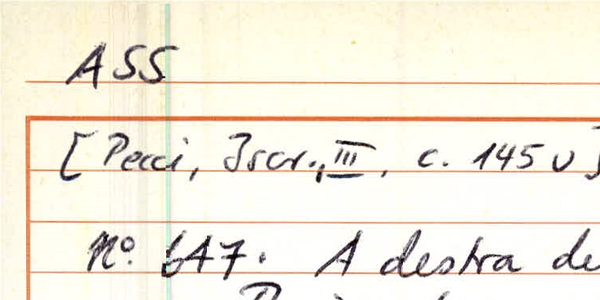 ASS
[Pecci, Iscr., III, c. 145 v]
Nº. 647. A destra de